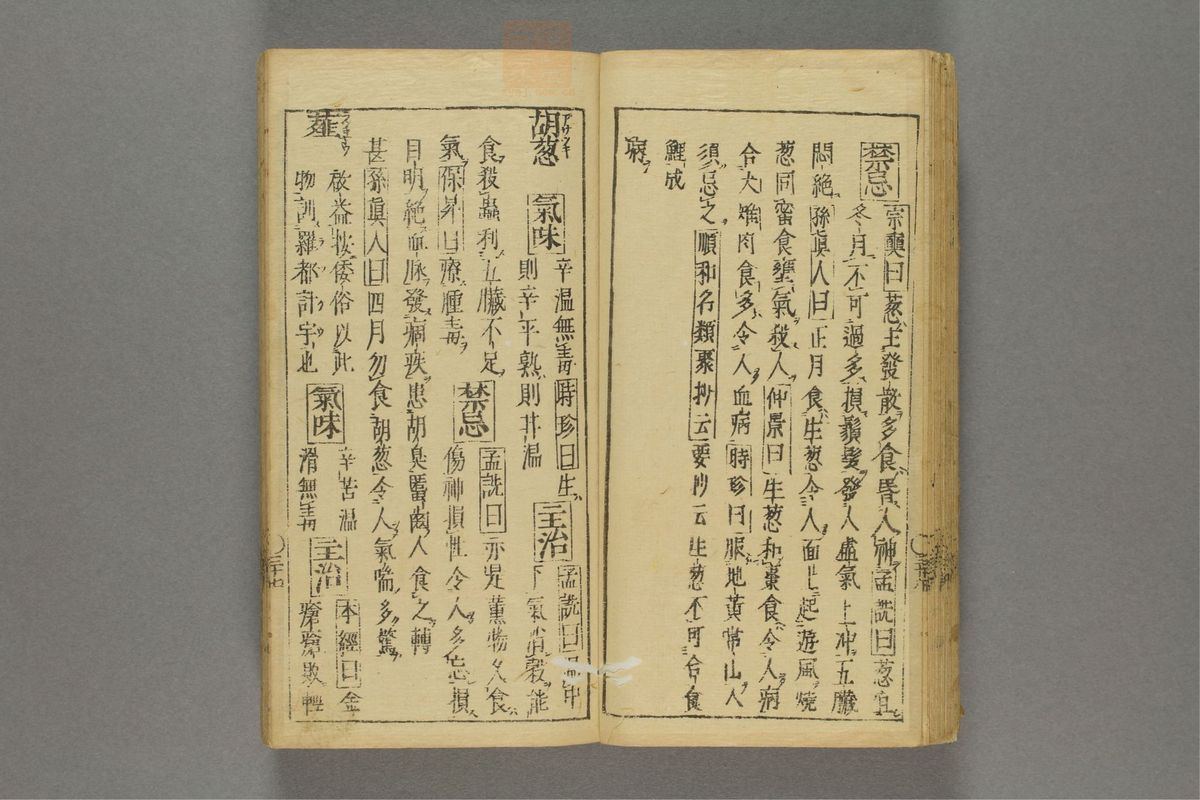 禁忌 宗奭曰葱主發散多食昏人神孟詵曰葱宜
冬月不可過多損鬚髮發人虛氣上冲五臟
悶絶孫眞人曰正月食生葱令人面上起遊風燒
葱同蜜食壅氣殺人仲景曰生葱和棗食令人病
合犬雉肉食多令人血病時珍曰服地黃常山人
須忌之順和名類聚抄云要抄云生葱不可合食
鯉成
病
胡葱 アサツキ 氣味 辛溫無毒時珍曰生
則辛平熟則甘溫 主治 孟詵曰溫中
下氣消穀能
食殺蟲利五臟不足
氣保昇曰療腫毒 禁忌 孟詵曰亦是薰物久食
傷神損性令人多忘損
目明絶血脉發痼疾患胡臭䘌齒人食之轉
甚孫眞人曰四月勿食胡葱令人氣喘多驚
薤 啟益按倭俗以此
物訓羅都計宇也 氣味 辛苦溫
滑無毒 主治 本經曰金
瘡瘡敗輕